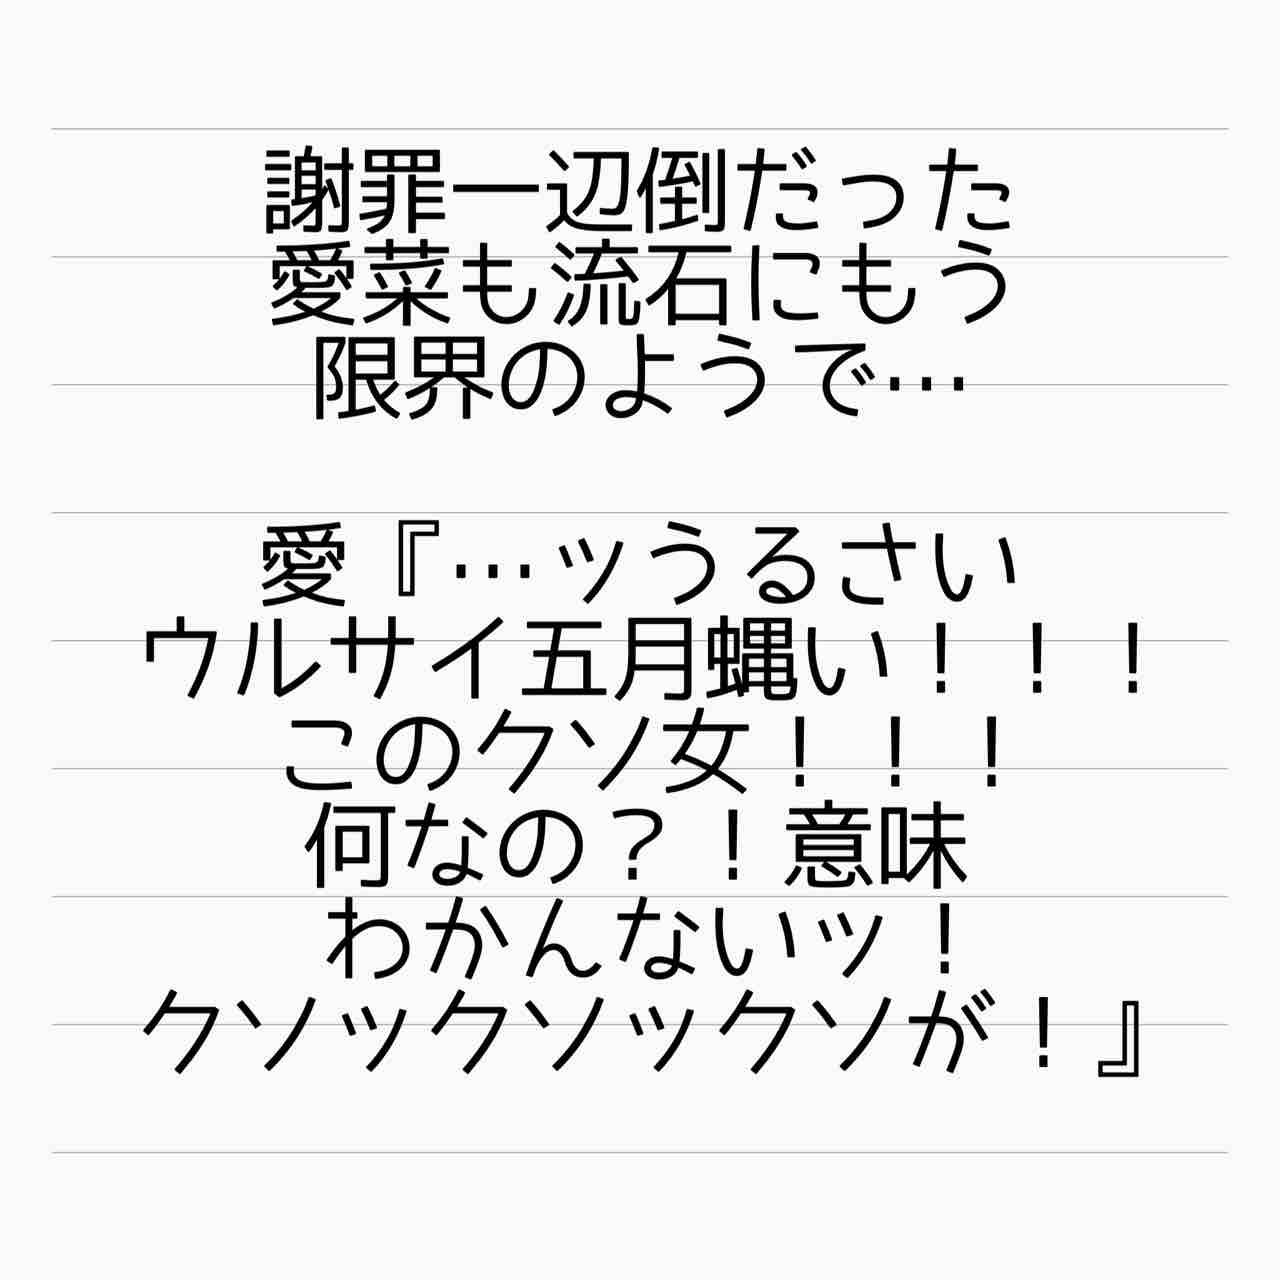 謝罪一辺倒だった
愛菜も流石にもう
限界のようで…
愛『…ッうるさい
ウルサイ五月蝿い！！！
このクソ女！！！
何なの？！意味
わかんないッ！
クソックソックソが！』